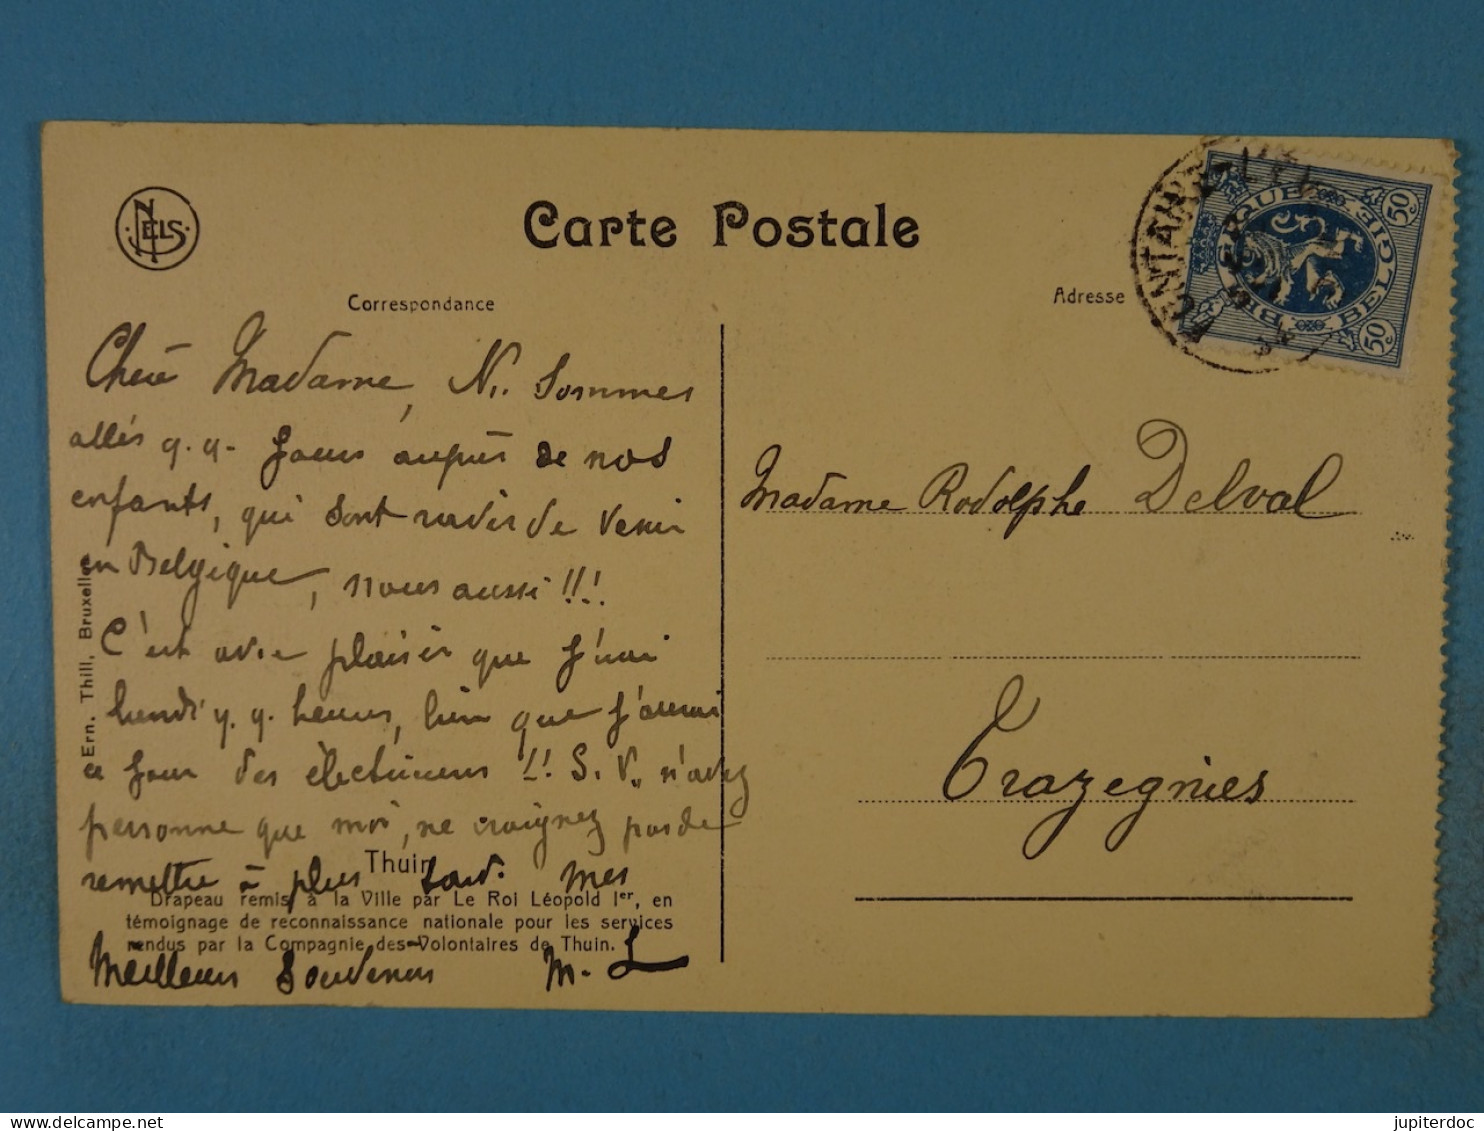 NELS
Carte Postale
Correspondance
Adresse
BELGIQUE BELGIË
50c
50c
Chère Madame, N.. Sommes
allés q.q. Jours auprès de nos
enfants, qui sont ravis de venir
en Belgique, nous aussi !!!
C'est avec plaisir que j'irai
lundi q.q. heures, bien que j'aurai
ce jour des électriciens !.! S. V.. n'avez
personne que moi, ne craignez pas de
remettre à plus tard. Mes
Meilleurs Souvenirs M. L
Madame Rodolphe Delval
Trazegnies
Ern. Thill, Bruxelles
Thuin
Drapeau remis à la Ville par Le Roi Léopold Ier, en
témoignage de reconnaissance nationale pour les services
rendus par la Compagnie des Volontaires de Thuin.
jupiterdoc